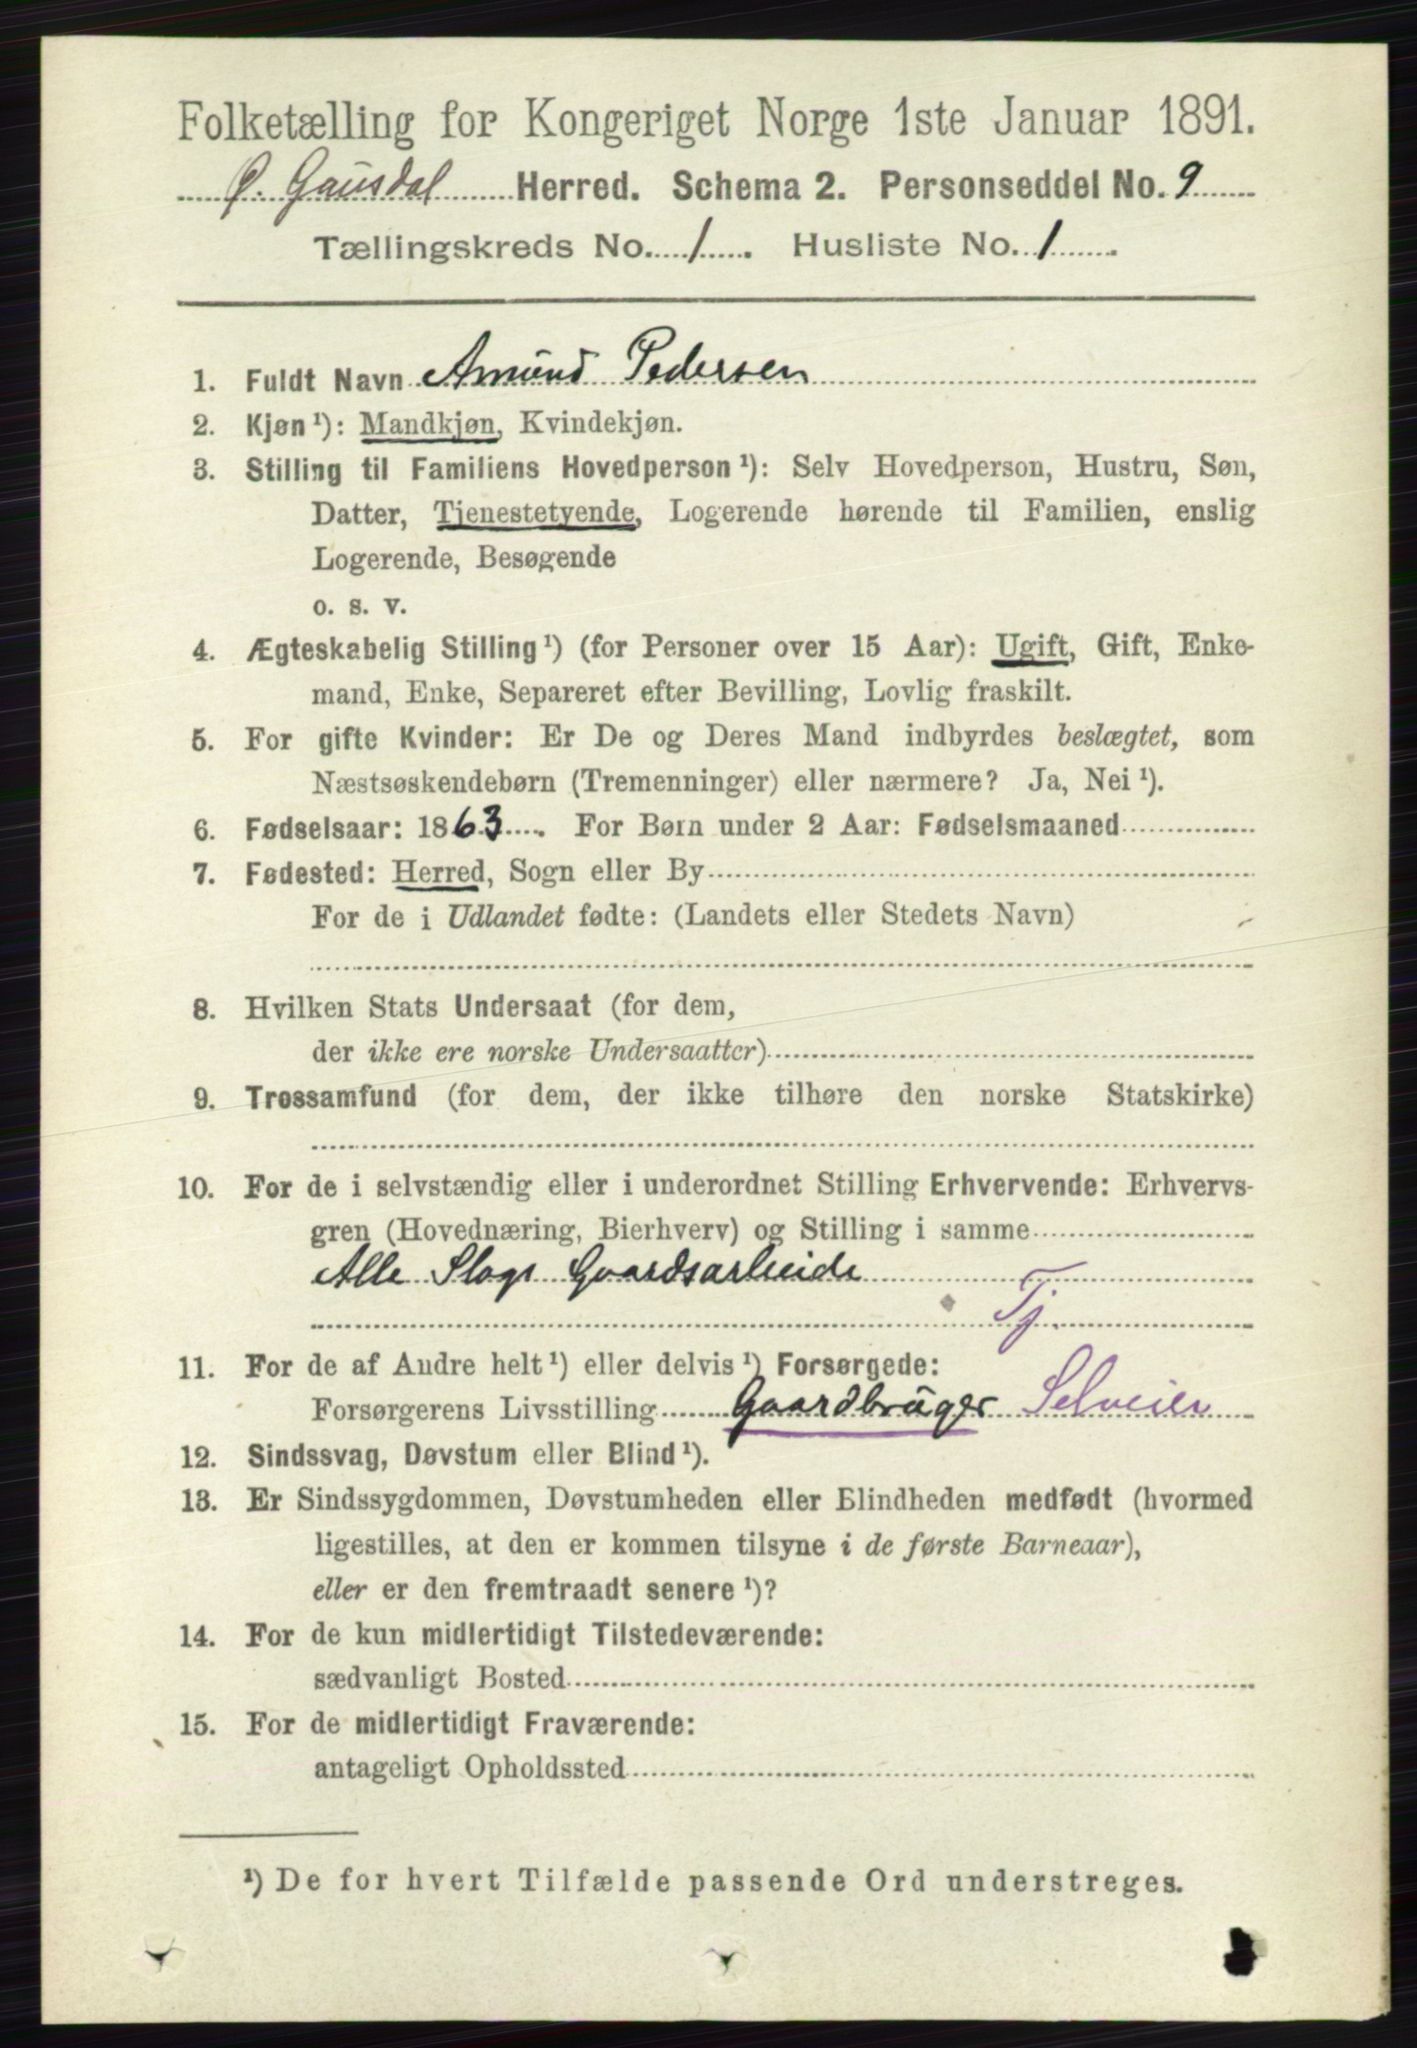 Folketælling for Kongeriget Norge 1ste Januar 1891.
Ø. Gausdal Herred. Schema 2. Personseddel No. 9
Tællingskreds No. 1. Husliste No. 1.
1. Fuldt Navn Amund Pedersen
2. Kjøn¹): Mandkjøn, Kvindekjøn.
3. Stilling til Familiens Hovedperson¹): Selv Hovedperson, Hustru, Søn,
Datter, Tjenestetyende, Logerende hørende til Familien, enslig
Logerende, Besøgende
o. s. v.
4. Ægteskabelig Stilling¹) (for Personer over 15 Aar): Ugift, Gift, Enke-
mand, Enke, Separeret efter Bevilling, Lovlig fraskilt.
5. For gifte Kvinder: Er De og Deres Mand indbyrdes beslægtet, som
Næstsøskendebørn (Tremenninger) eller nærmere? Ja, Nei¹).
6. Fødselsaar: 1863. For Børn under 2 Aar: Fødselsmaaned
7. Fødested: Herred, Sogn eller By
For de i Udlandet fødte: (Landets eller Stedets Navn)
8. Hvilken Stats Undersaat (for dem,
der ikke ere norske Undersaatter)
9. Trossamfund (for dem, der ikke tilhøre den norske Statskirke)
10. For de i selvstændig eller i underordnet Stilling Erhvervende: Erhvervs-
gren (Hovednæring, Bierhverv) og Stilling i samme
Alle Slags Gaardsarbeide
Tj.
11. For de af Andre helt¹) eller delvis¹) Forsørgede:
Forsørgerens Livsstilling Gaardbruger Selveier
12. Sindssvag, Døvstum eller Blind¹).
13. Er Sindssygdommen, Døvstumheden eller Blindheden medfødt (hvormed
ligestilles, at den er kommen tilsyne i de første Barneaar),
eller er den fremtraadt senere¹)?
14. For de kun midlertidigt Tilstedeværende:
sædvanligt Bosted
15. For de midlertidigt Fraværende:
antageligt Opholdssted
¹) De for hvert Tilfælde passende Ord understreges.